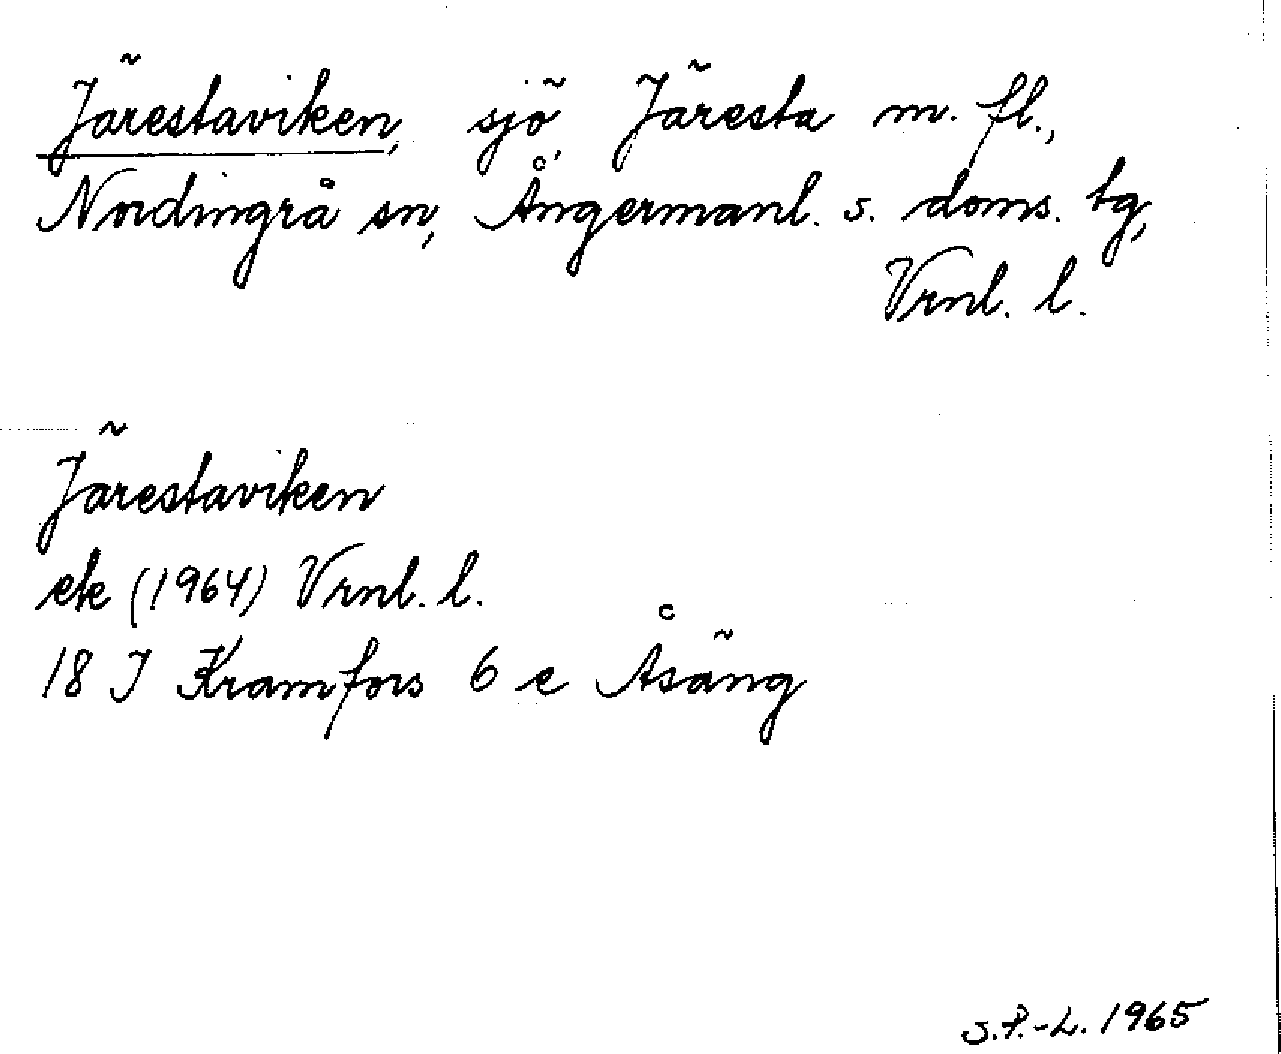 Järestaviken, sjö, Järesta m. fl.,
Nordingrå sn, Ångermanl. s. doms. tg,
Vrnl. l.
Järestaviken
ek (1964) Vrnl. l.
18 J Kramfors 6 e Åsäng
S.P.-L. 1965